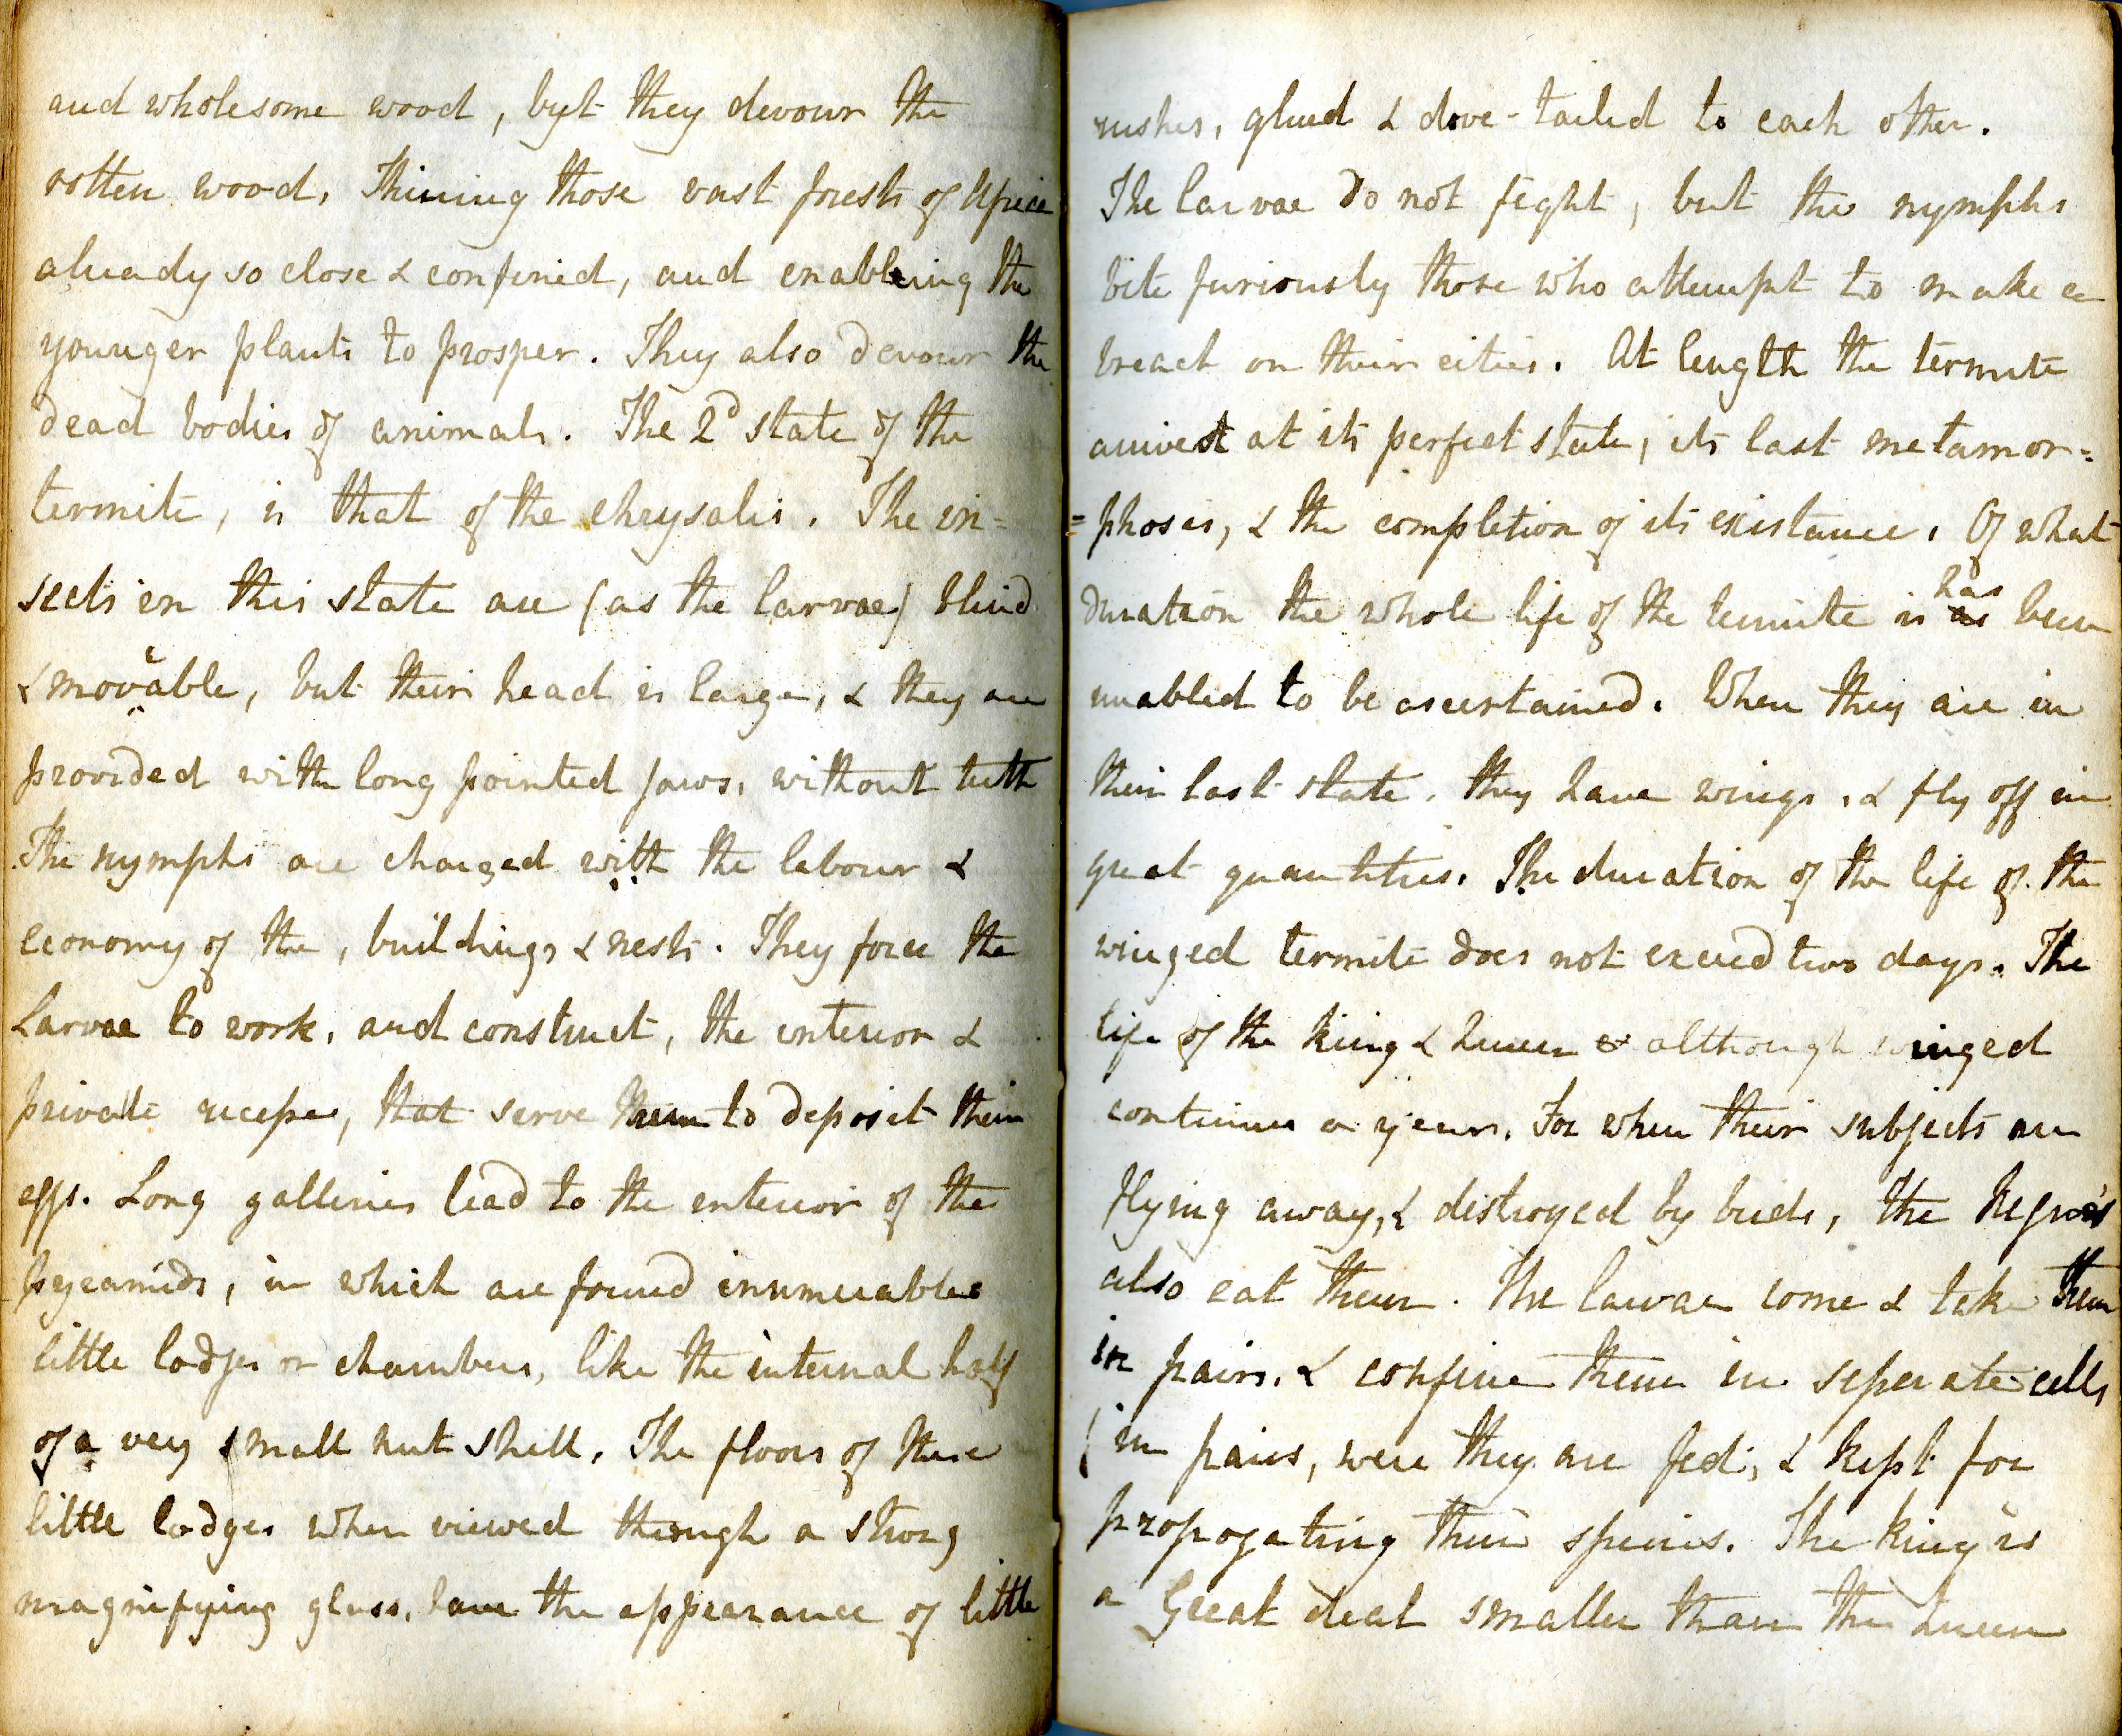 and wholesome wood, byt they devour the
rotten wood, Thining those vast forests of Africa
already so close & confined, and enableing the
younger plants to prosper. They also devour the
dead bodies of animals. The 2d state of the
termite, is that of the chrysalis. The in=
sects in this state are (as the larvae) blind
& movable, but their head is large, & they are
provided with long pointed jaws, without teeth
The nymphs are charged with the labour &
economy of the, buildings & nests. They force the
Larvae to work, and construct, the interior &
private recesses, that serve them to deposit their
eggs. Long galleries lead to the interior of the
pyramids, in which are found inumerable
little lodges or chambers, like the internal half
of a very small nut shell. The floors of these
little lodges when viewed through a strong
magnifying glass, have the appearance of little
rushes, glued & dove-tailed to each other.
The larvae do not fight, but the nymphs
bite furiously those who attempt to make a
breach on their cities. At length the termite
arrivest at its perfect state, its last metamor=
=phosis, & the completion of its existance. Of what
duration the whole life of the termite is as has been
unabled to be ascertained. When they are in
their last state, they have wings, & fly off in
great quantities. The duration of the life of the
winged termite does not exceed two days. The
life of the king & Queen & although winged
continues a year. For when their subjects are
flying away, & destroyed by birds, the Negroes
also eat them. The larvae come & take them
in pairs, & confine them in seperate cells
(in pairs, were they are fed, & kept for
propogating their species. The king is
a Great deal smaller than the Queen